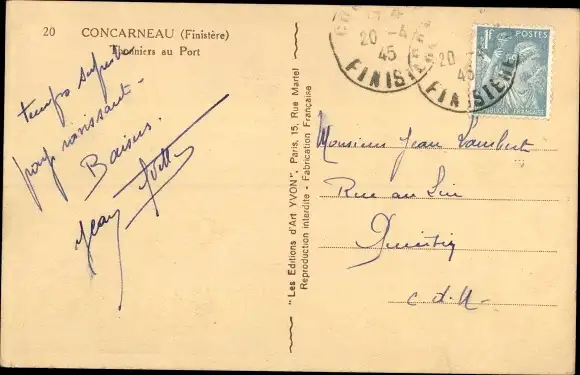 20 CONCARNEAU (Finistère)
Thonniers au Port
temps superbe
pays ravissant -
Baisers.
Jean Yvette
"Les Editions d'Art YVON", Paris, 15, Rue Martel
Reproduction interdite - Fabrication Française
20 -4
45
FINISTERE
20
45
FINISTERE
1F POSTES
Monsieur Jean Lambert
Rue au Lin
Quintin
C.d.N-